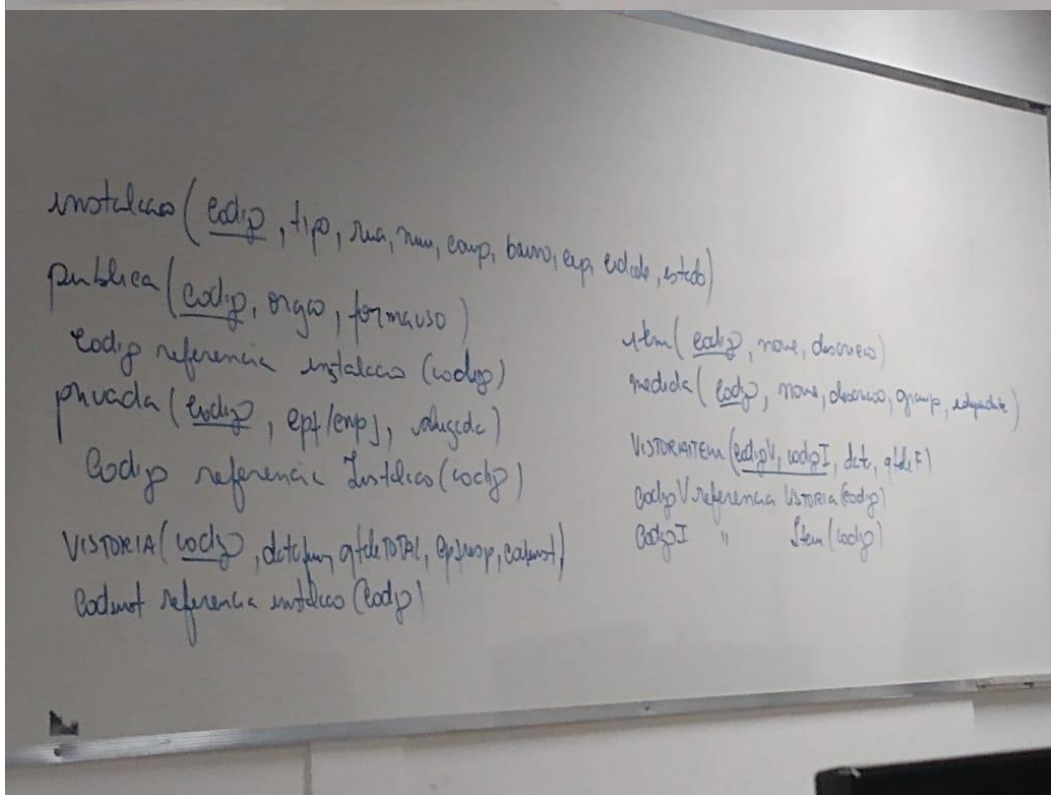 instalcao (codigo, tipo, rua, num, comp, bairro, cep, cidade, estado)
publica (codigo, orgao, formauso)
codigo referencia instalacao (codigo)
privada (codigo, cpf/cnpj, alugada)
Codigo referencia Instalcao (codigo)
VISTORIA (codigo, qtdeTOTAL, codinst)
Codinst referencia instalcao (codigo)
item (codigo, nome, descricao)
medida (codigo, nome, descricao)
VISTORIAITEM (codigoV, codigoI, data, qtdeF)
codigoV referencia VISTORIA (codigo)
codigoI " Item (codigo)